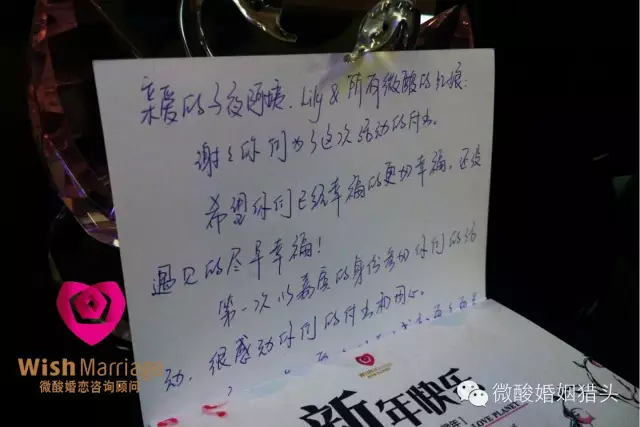 亲爱的子夜阿姨、Lily & 所有微酸的红娘:
谢谢你们为了这次活动的付出。
希望你们已经幸福的更加幸福,还没
遇见的尽早幸福!
第一次以嘉宾的身份参加你们的活
动,很感动你们的付出和用心。
新年快乐
LOVE PLANET
Wish Marriage
微酸婚恋咨询顾问
微酸婚姻猎头